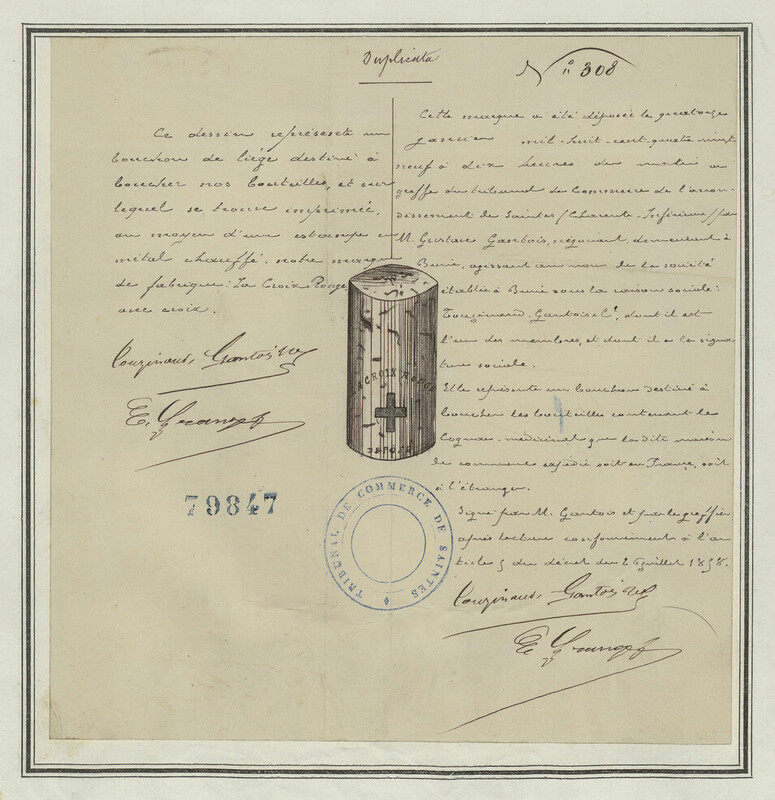 Duplicata
N° 308
Ce dessin représente un
bouchon de liége destiné à
boucher nos bouteilles, et sur
lequel se trouve imprimée,
au moyen d'un estampe en
métal chauffé, notre marque
de fabrique: La Croix Rouge
avec croix.
Couzinaud, Gantois & Cie
79847
Cette marque a été déposée le quatorze
janvier mil-huit-cent-quatre-vingt
neuf à dix heures du matin au
greffe du tribunal de Commerce de l'arron-
dissement de Saintes (Charente-Inférieure) par
M. Gustave Gantois, négociant, demeurant à
Burie, agissant au nom de la société
établie à Burie sous la raison sociale:
Couzinaud, Gantois & Cie, dont il est
l'un des membres, et dont il a la signa-
ture sociale.
Elle représente un bouchon destiné à
boucher les bouteilles contenant le
Cognac-médicinal que la dite maison
de commerce expédie soit en France, soit
à l'étranger.
Signé par M. Gantois et par le greffier
après lecture conformément à l'ar-
ticle 5 du décret du 26 juillet 1858.
Couzinaud, Gantois & Cie
LA CROIX ROUGE
DÉPOSÉ
TRIBUNAL DE COMMERCE DE SAINTES